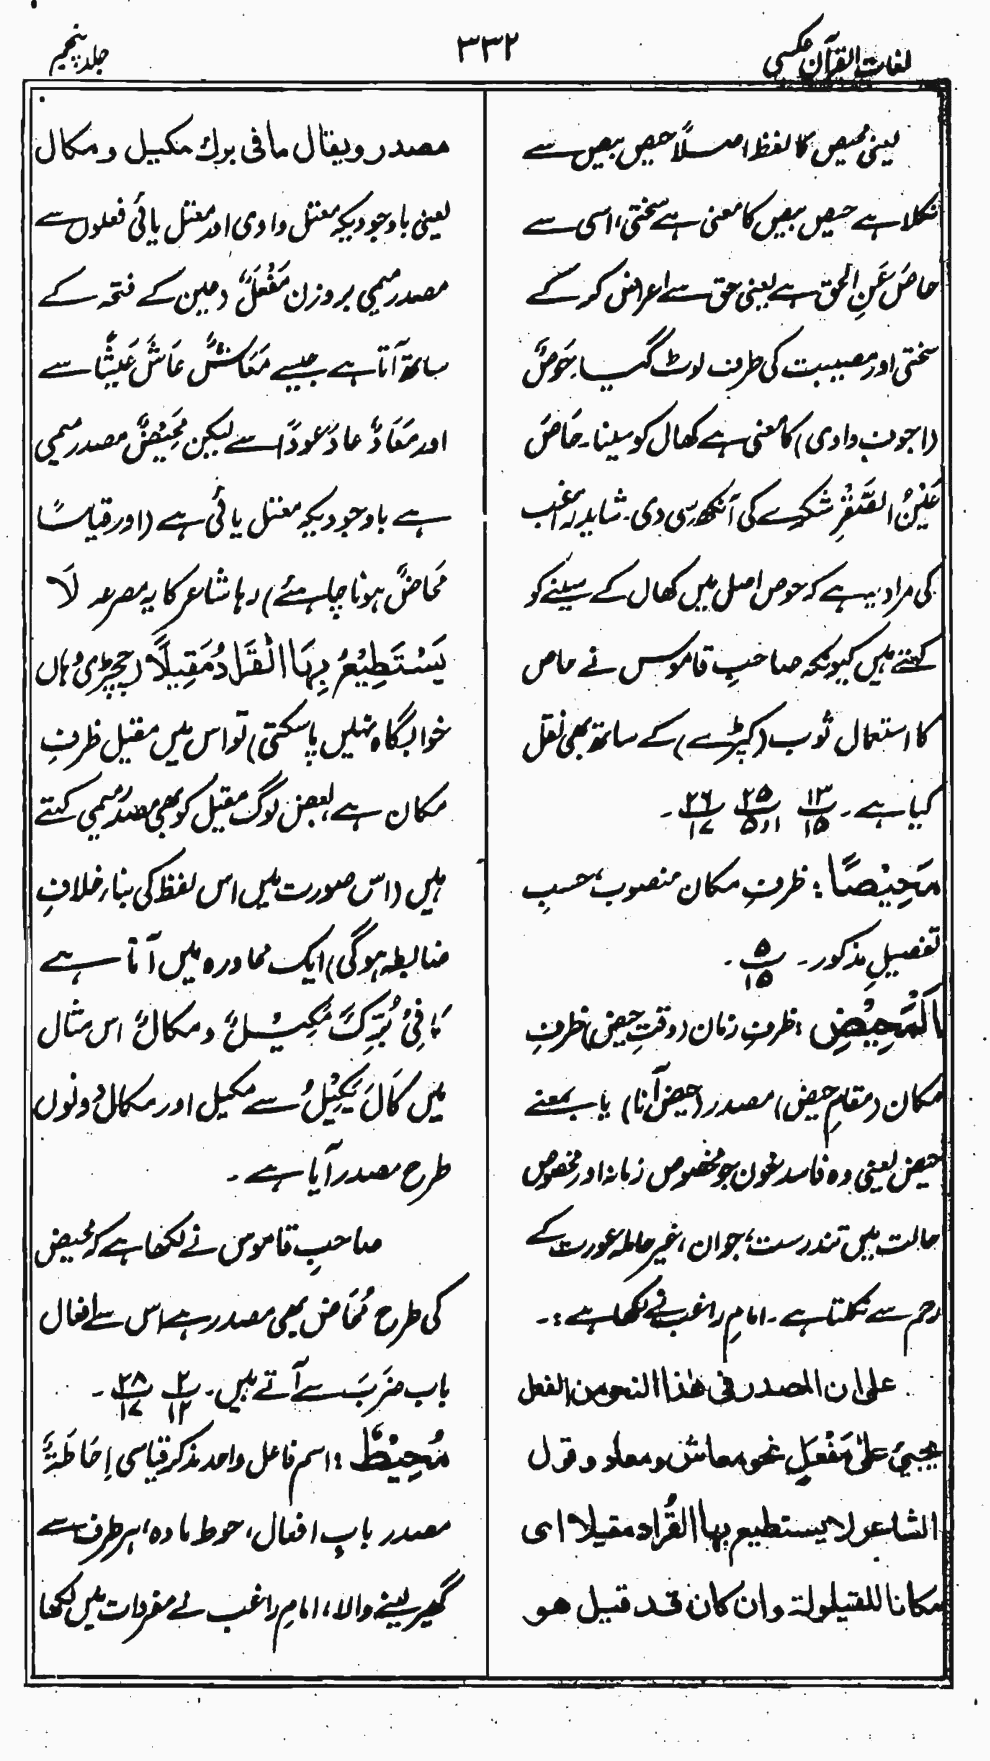 لغات القرآن عکسی
۳۳۲
جلد پنجم
یعنی محیص کا لفظ اصلاً حیص بیص سے
نکلا ہے حیص بیص کا معنی ہے سختی، اسی سے
حَاصَ عَنِ الحق ہے یعنی حق سے اعراض کر کے
سختی اور مصیبت کی طرف لوٹ گیا۔ حَوصٌ
(اجوف وادی) کا معنی ہے کھال کو سینا۔ حَاصَ
عَیْنُ الصَّقْرِ شکرے کی آنکھ سی دی۔ شاید راغب
کی مراد یہ ہے کہ حوص اصل میں کھال کے سینے کو
کہتے ہیں کیونکہ صاحبِ قاموس نے حاص
کا استعمال ثوب (کپڑے) کے ساتھ بھی نقل
کیا ہے۔ ۱۳/۱۵ ۲۵/۱،۵ ۲۶/۱۷۔
مَحِیْصًا: ظرفِ مکان منصوب، حسبِ
تفصیل مذکور۔ ۵/۱۵۔
اَلْمَحِیْضِ: ظرفِ زمان (وقتِ حیض) ظرفِ
مکان (مقامِ حیض) مصدر (حیض آنا) یا بمعنے
حیض یعنی وہ فاسد خون جو مخصوص زمانہ اور مخصوص
حالت میں تندرست، جوان، غیر حاملہ عورت کے
رحم سے نکلتا ہے۔ امامِ راغب نے لکھا ہے:۔
علی ان المصدر فی هذا النحو من الفعل
یجیئ علیٰ مَفْعَلٍ نحو معاش و معاد و قول
الشاعر لا یستطیع بها القُراد مقیلا ای
مکانا للقیلولة و ان کان قد قیل هو
مصدر و یقال ما فی برك مکیل و مکال
یعنی باوجودیکہ معتل وادی اور معتل یائی فعلوں سے
مصدر میمی بروزن مَفْعَلٌ (عین کے فتحہ کے
ساتھ آتا ہے جیسے مَعَاشٌ عَاشَ عَیْشًا سے
اور مَعَادٌ عَادَ عَودًا سے لیکن مَحِیْضٌ مصدر میمی
ہے باوجودیکہ معتل یائی ہے (اور قیاسًا
مَحَاضٌ ہونا چاہئے) رہا شاعر کا یہ مصرعہ لَا
یَسْتَطِیْعُ بِهَا الْقُرَادُ مَقِیلًا (چچڑی وہاں
خوابگاہ نہیں پا سکتی) تو اس میں مقیل ظرفِ
مکان ہے، بعض لوگ مقیل کو بھی مصدر میمی کہتے
ہیں (اس صورت میں اس لفظ کی بناء خلافِ
ضابطہ ہوگی) ایک محاورہ میں آتا ہے
مَا فِیْ بُرِّكَ مَکِیْلٌ و مکالٌ اس مثال
میں کَالَ یَکِیْلُ سے مکیل اور مکال دونوں
طرح مصدر آیا ہے۔
صاحبِ قاموس نے لکھا ہے کہ محیض
کی طرح مَحَاض بھی مصدر ہے اس سے افعال
باب ضَرَبَ سے آتے ہیں۔ ۲/۱۲ ۲۸/۱۷۔
مُحِیْطٌ: اسم فاعل واحد مذکر قیاسی اِحَاطَةٌ
مصدر بابِ افعال، حوط مادہ، ہر طرف سے
گھیر لینے والا، امامِ راغب نے مفردات میں لکھا